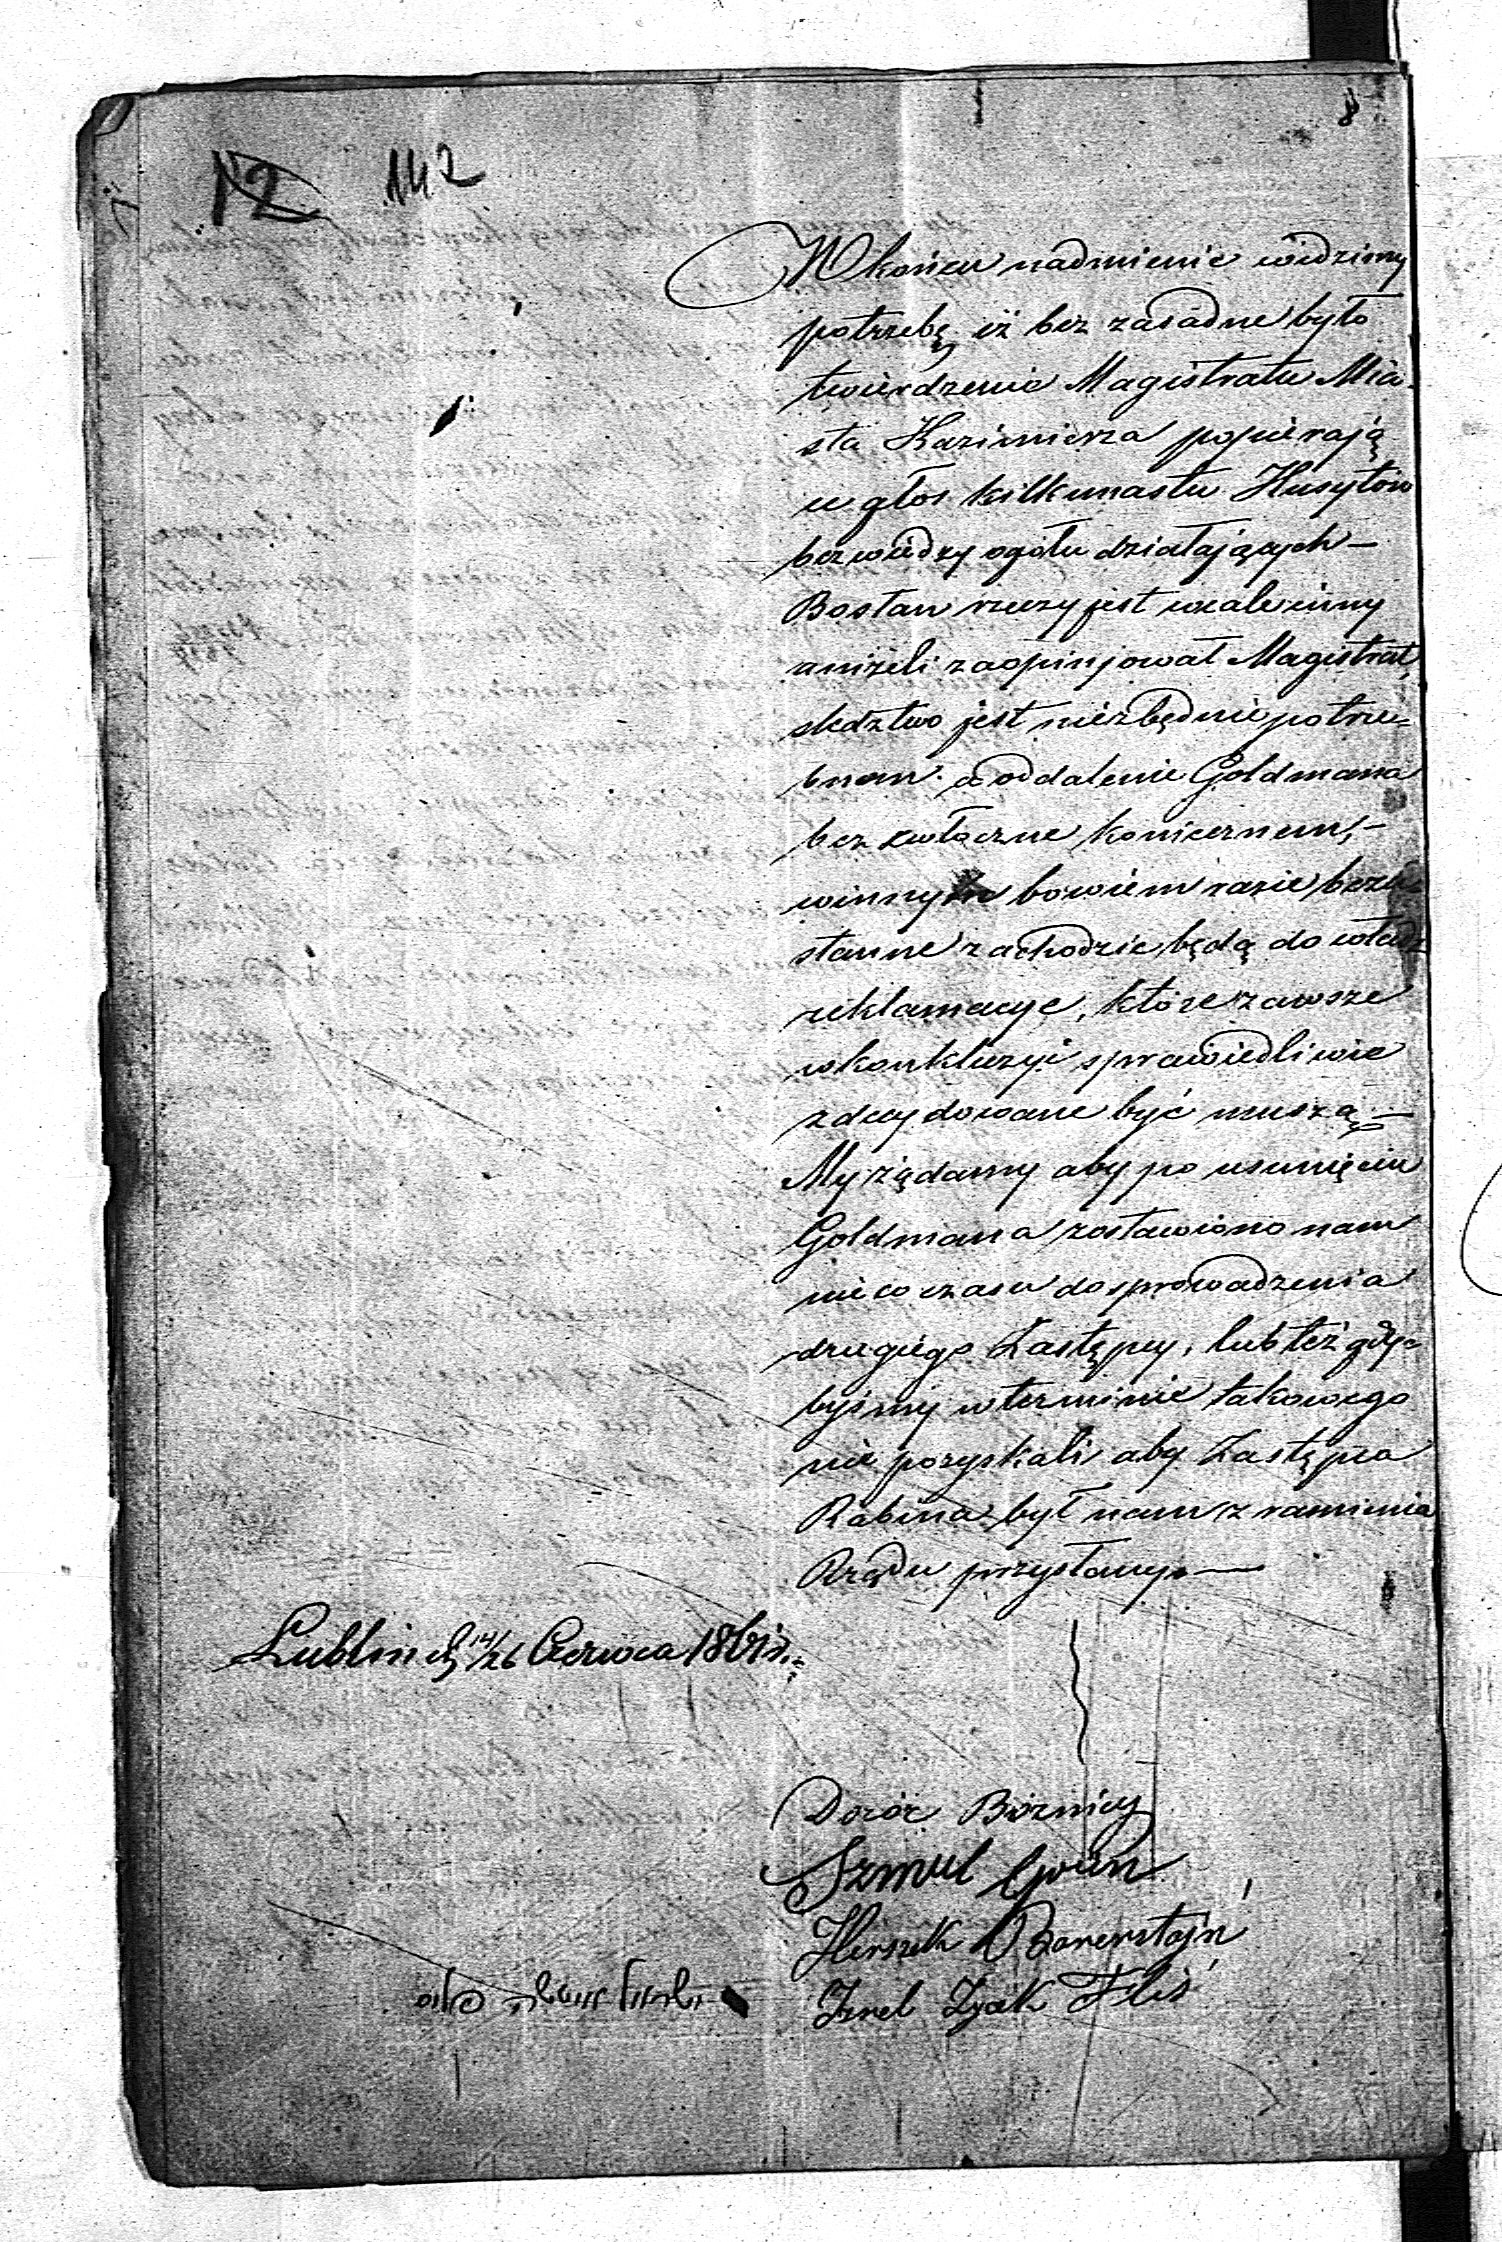 8
12 142
W końcu nadmienić widzimy
potrzebę iż bez zasadne było
twierdzenie Magistratu Mia-
sta Kazimierza popierają
u głos kilkunastu Husytów
bez wiedzy ogółu działających —
Bo stan rzeczy jest wcale inny
aniżeli zaopinjował Magistrat,
śledztwo jest niezbędnie potrze=
bnem a oddalenie Goldmana
bez zwłoczne koniecznem, —
w innym bowiem razie bezu=
stanne zachodzić będą do władz
reklamacye, które zawsze
w konkluzyi sprawiedliwie
zdecydowane być muszą —
My żądamy aby po usunięciu
Goldmana zostawiono nam
nieco czasu do sprowadzenia
drugiego Zastępcy, lub też gdy=
byśmy w terminie takowego
nie pozyskali, aby Zastępca
Rabina był nam z ramienia
Rządu przysłany. —
Lublin d 14/26 Czerwca
Dozór Bóżnicy
Szmul Grün
Herszek
Icek Fliś